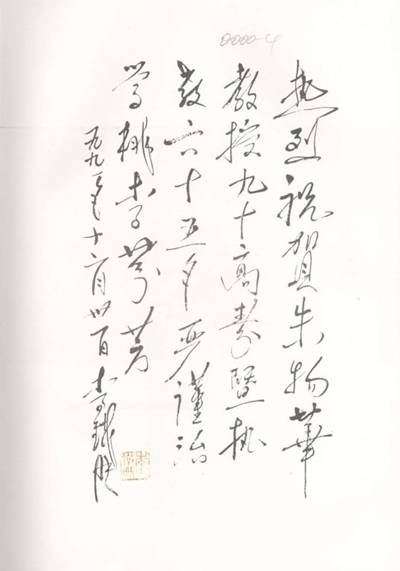 0000-4
热烈祝贺朱物華
教授九十高寿暨执
教六十五年严谨治
学桃李芬芳
一九九一年十二月廿日 李铁映